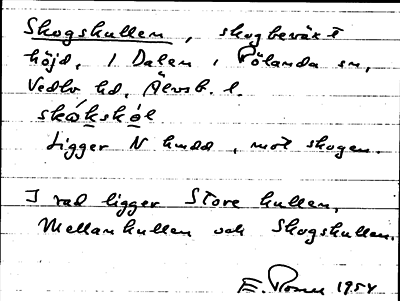 Skogskullen, skogbeväxt
höjd, i Dalen i Rölanda sn,
Vedbo hd. Älvsb. l.
Ligger N  , mot skogen.
I rad ligger Store kullen,
Mellankullen och Skogskullen.
E. 1954